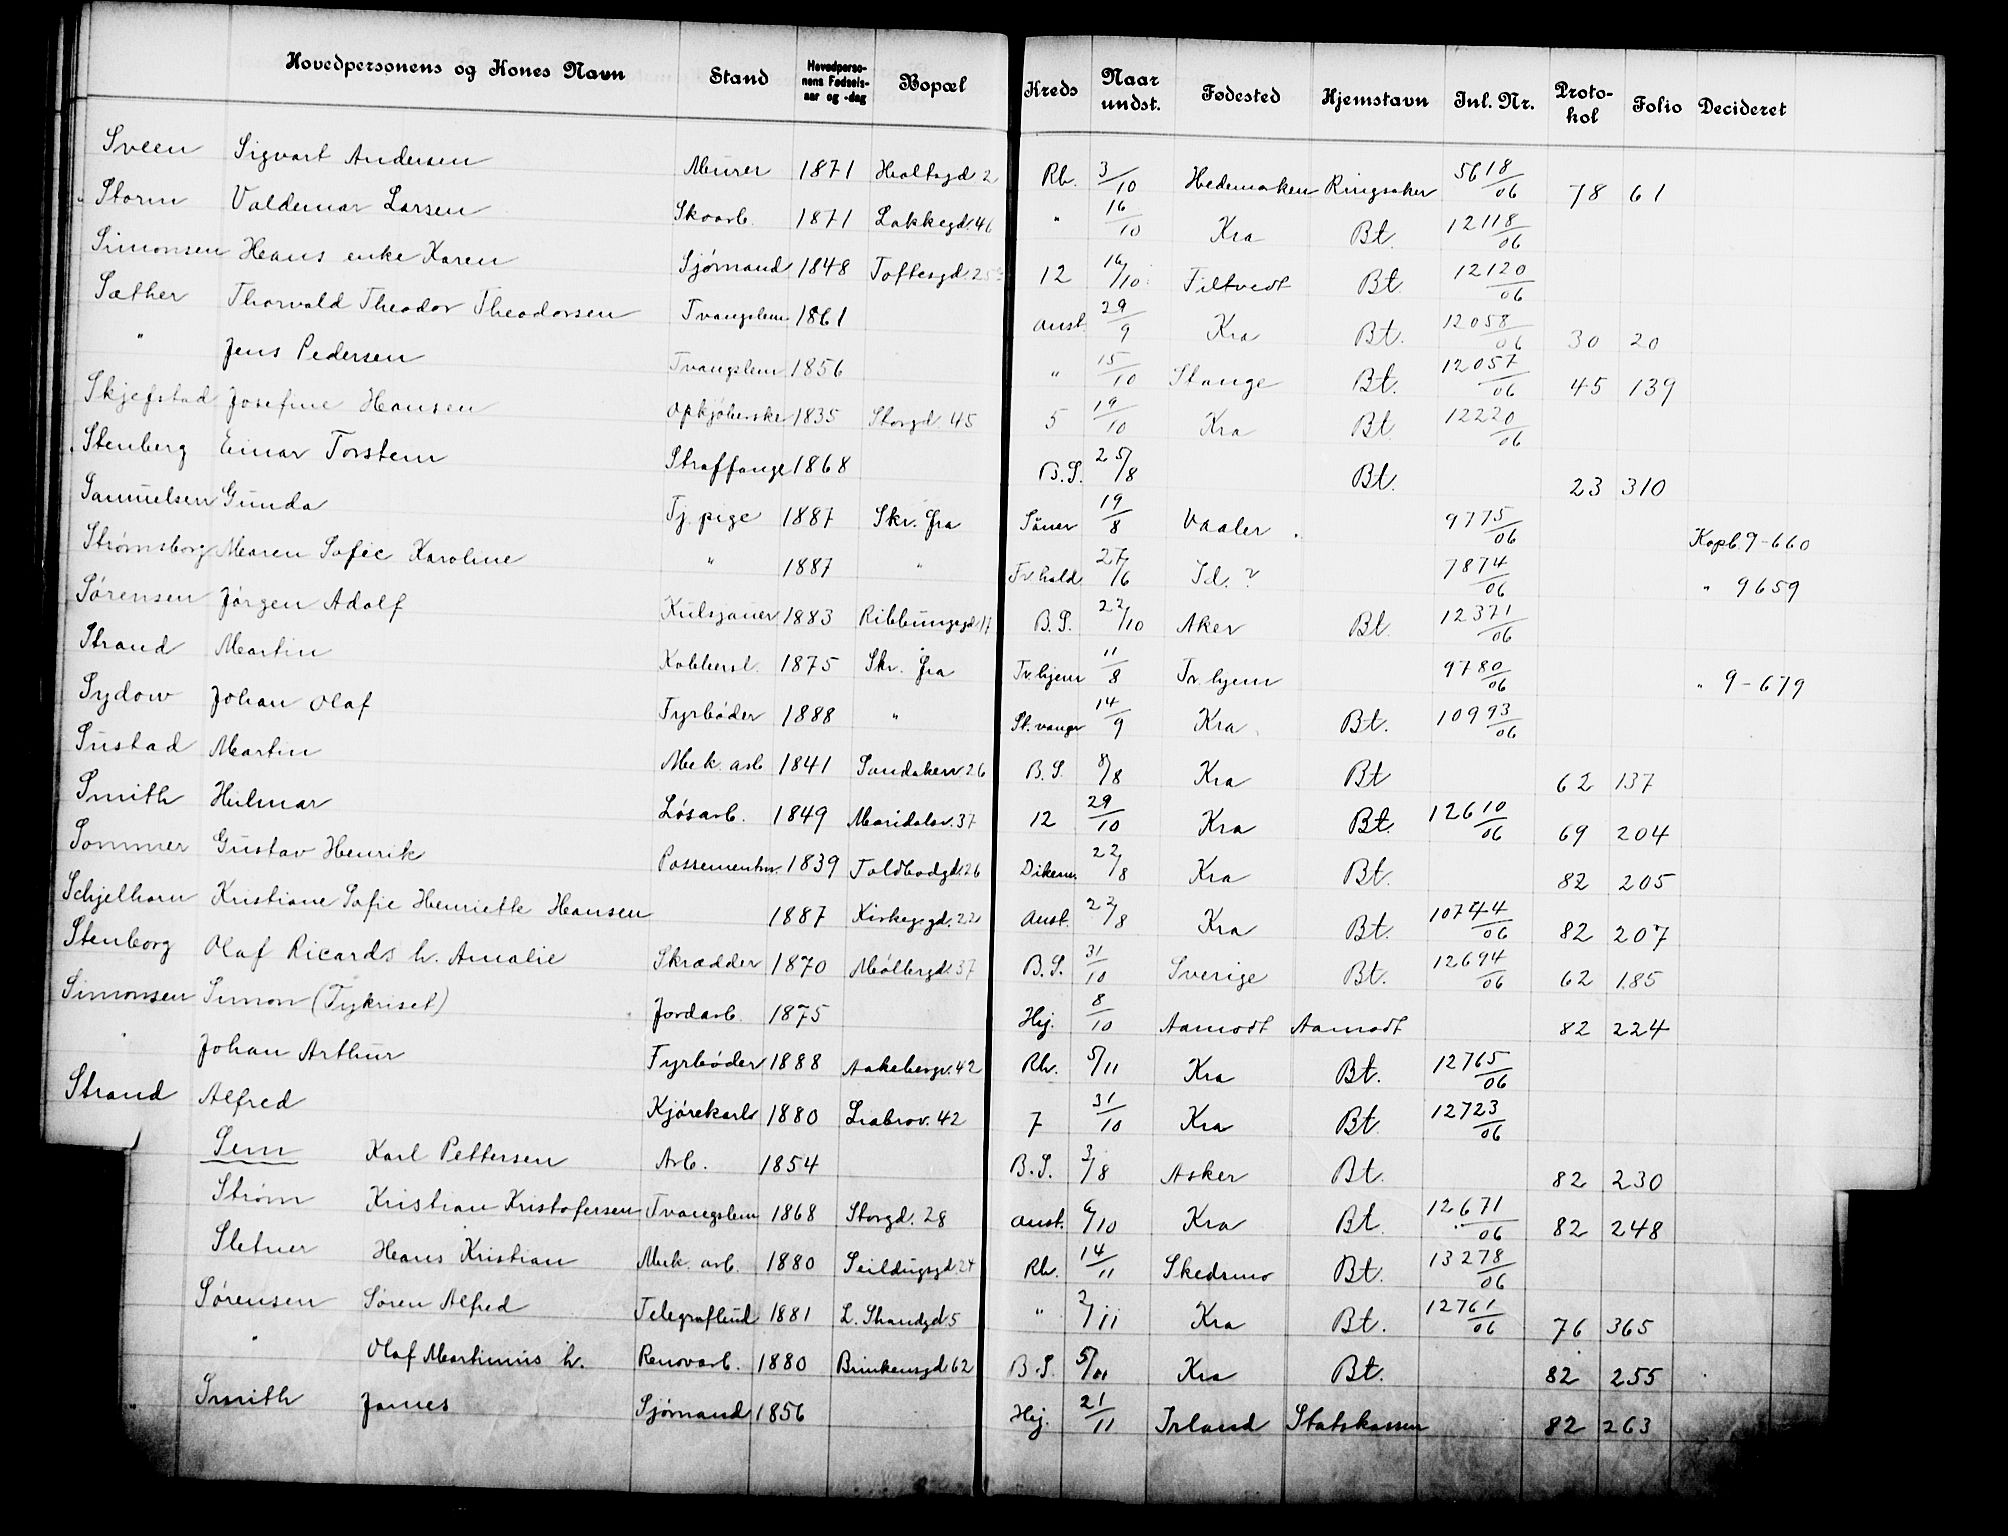 Hovedpersonens og Kones Navn Stand Hovedpersonens Fødselsaar og -dag Bopæl Kreds Naar undst. Fødested Hjemstavn Inl. Nr. Protokol Folio Decideret
Sveen Sigvart Andersen Murer 1871 Holtsgd 2 Rh. 3/10 Hedemarken Ringsaker 5618/06 78 61
Storm Valdemar Larsen Skoarb. 1871 Lakkegd. 46 " 16/10 Kra Bt. 12118/06
Simonsen Hans enke Karen Sjømand 1848 Toftesgd 25 12 16/10 Filtvedt Bt. 12120/06
Sæther Thorvald Theodor Theodorsen Tvangslem 1861 Anst. 29/9 Kra Bt. 12058/06 30 20
" Jens Pedersen Tvangslem 1856 " 15/10 Stange Bt. 12057/06 45 139
Skjefstad Josefine Hansen Opkjøberske 1835 Storgd. 45 5 19/10 Kra Bt 12220/06
Stenberg Einar Torstein Straffange 1868 B.S. 25/8 Bt. 23 310
Samuelsen Gunda Tj. pige 1887 Skr. fra Såner 19/8 Vaaler 9775/06 Kopb. 9-660
Strømsborg Maren Sofie Karoline " 1887 " Fr.hald 27/6 Id. ? 7874/06 " 9659
Sørensen Jørgen Adolf Kulsjauer 1883 Ribbungsgd 17 B.S. 22/10 Aker Bt. 12371/06
Strand Martin Kobberst. 1875 Skr. fra Tr.hjem 11/8 Tr. hjem 9780/06 " 9-679
Sydow Johan Olaf Fyrbøder 1888 " St.vangr 14/9 Kra Bt. 10993/06
Sustad Martin Mek. arb 1841 Sandakerv. 26 B.S. 8/8 Kra Bt 62 137
Smith Hilmar Løsarb. 1849 Maridalsv. 37 12 29/10 Kra Bt. 12610/06 69 204
Sommer Gustav Henrik Possementm. 1839 Toldbodgd. 26 Dikem. 22/8 Kra Bt. 82 205
Schjelhorn Kristiane Sofie Henriette Hansen 1887 Kirkegd. 22 Anst. 22/8 Kra Bt. 10744/06 82 207
Stenborg Olaf Ricards h. Amalie Skrædder 1870 Møllergd. 37 B.S. 31/10 Sverige Bt. 12694/06 62 185
Simonsen Simon (Tykriset) Jordarb. 1875 Hij. 8/10 Aamodt Aamodt 82 224
" Johan Arthur Fyrbøder 1888 Aakebergv. 42 Rh. 5/11 Kra Bt. 12765/06
Strand Alfred Kjørekarl 1880 Liabrov. 42 7 31/10 Kra Bt. 12723/06
Sem Karl Pettersen Arb. 1854 B.S. 3/8 Asker Bt. 82 230
Strøm Kristian Kristofersen Tvangslem 1868 Storgd. 28 Anst. 6/10 Kra Bt. 12671/06 82 248
Sletner Hans Kristian Mek. arb. 1880 Seildugsgd 24 Rh. 14/11 Skedsmo Bt. 13278/06
Sørensen Søren Alfred Telegrafbud 1881 L. Strandgd 5 " 2/11 Kra Bt. 12761/06 76 365
" Olaf Martinius h. Renovarb. 1880 Brinkensgd 62 B.S. 5/11 Kra Bt. 82 255
Smith James Sjømand 1856 Hij. 21/11 Irland Statskassen 82 263